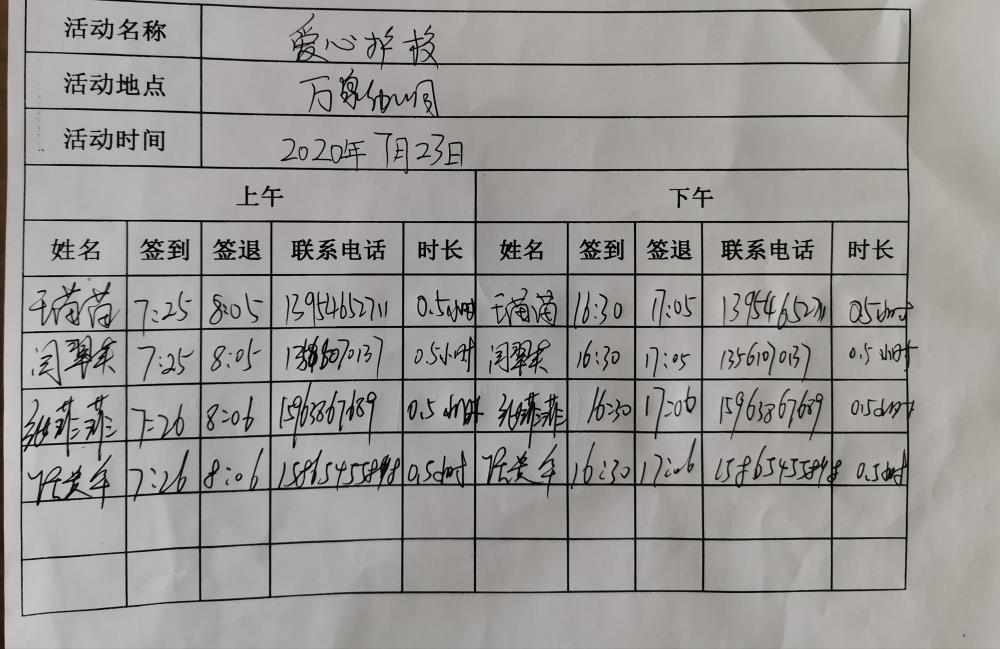 活动名称 爱心护校
活动地点 万泉幼儿园
活动时间 2020年7月23日
上午 下午
姓名 签到 签退 联系电话 时长 姓名 签到 签退 联系电话 时长
王苗苗 7:25 8:05 13954652711 0.5小时 王苗苗 16:30 17:05 13954652711 0.5小时
闫翠英 7:25 8:05 0.5小时 闫翠英 16:30 17:05 13561070137 0.5小时
菲菲 7:26 8:06 15963867689 0.5小时 菲菲 16:30 17:06 15963867689 0.5小时
7:26 8:06 0.5小时 16:30 17:06 0.5小时